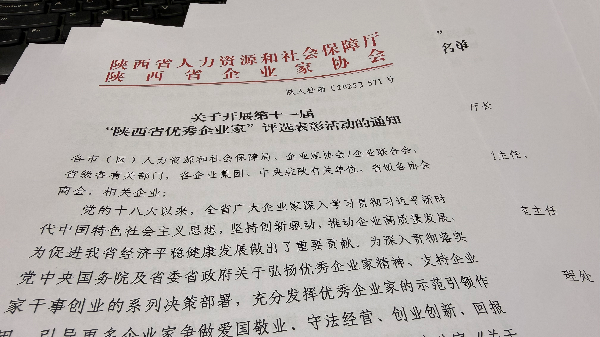 陕西省人力资源和社会保障厅
陕西省企业家协会
关于开展第十一届
“陕西省优秀企业家”评选表彰活动的通知
各市（区）人力资源和社会保障局、企业家协会/企业联合会，
省级各有关部门，各企业集团、中央驻陕有关单位，省级各协会
商会，相关企业：
党的十八大以来，全省广大企业家深入学习贯彻习近平新时
代中国特色社会主义思想，坚持创新驱动，推动企业高质量发展，
为促进我省经济平稳健康发展做出了重要贡献。为深入贯彻落实
党中央国务院及省委省政府关于弘扬优秀企业家精神、支持企业
家干事创业的系列决策部署，充分发挥优秀企业家的示范引领作
用，引导更多企业家争做爱国敬业、守法经营、创业创新、回报
”
名单
厅长
主任、
主任
处